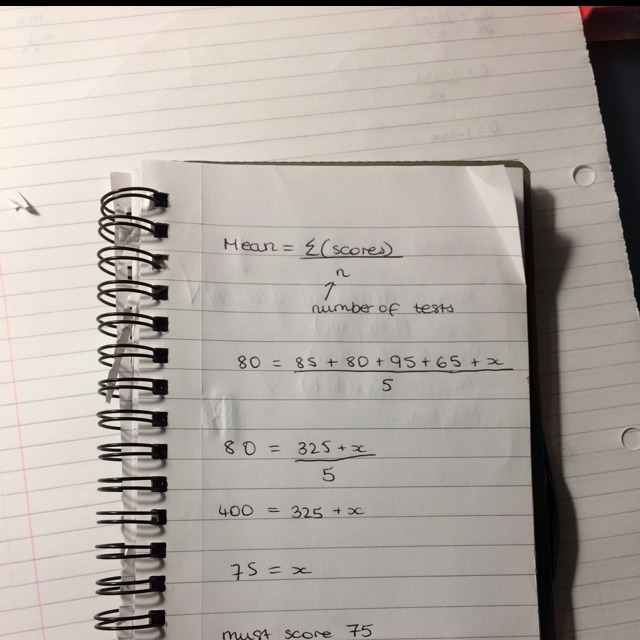 Mean = Σ(scores)
n
↑
number of tests
80 = 85 + 80 + 95 + 65 + x
5
80 = 325 + x
5
400 = 325 + x
75 = x
must score 75